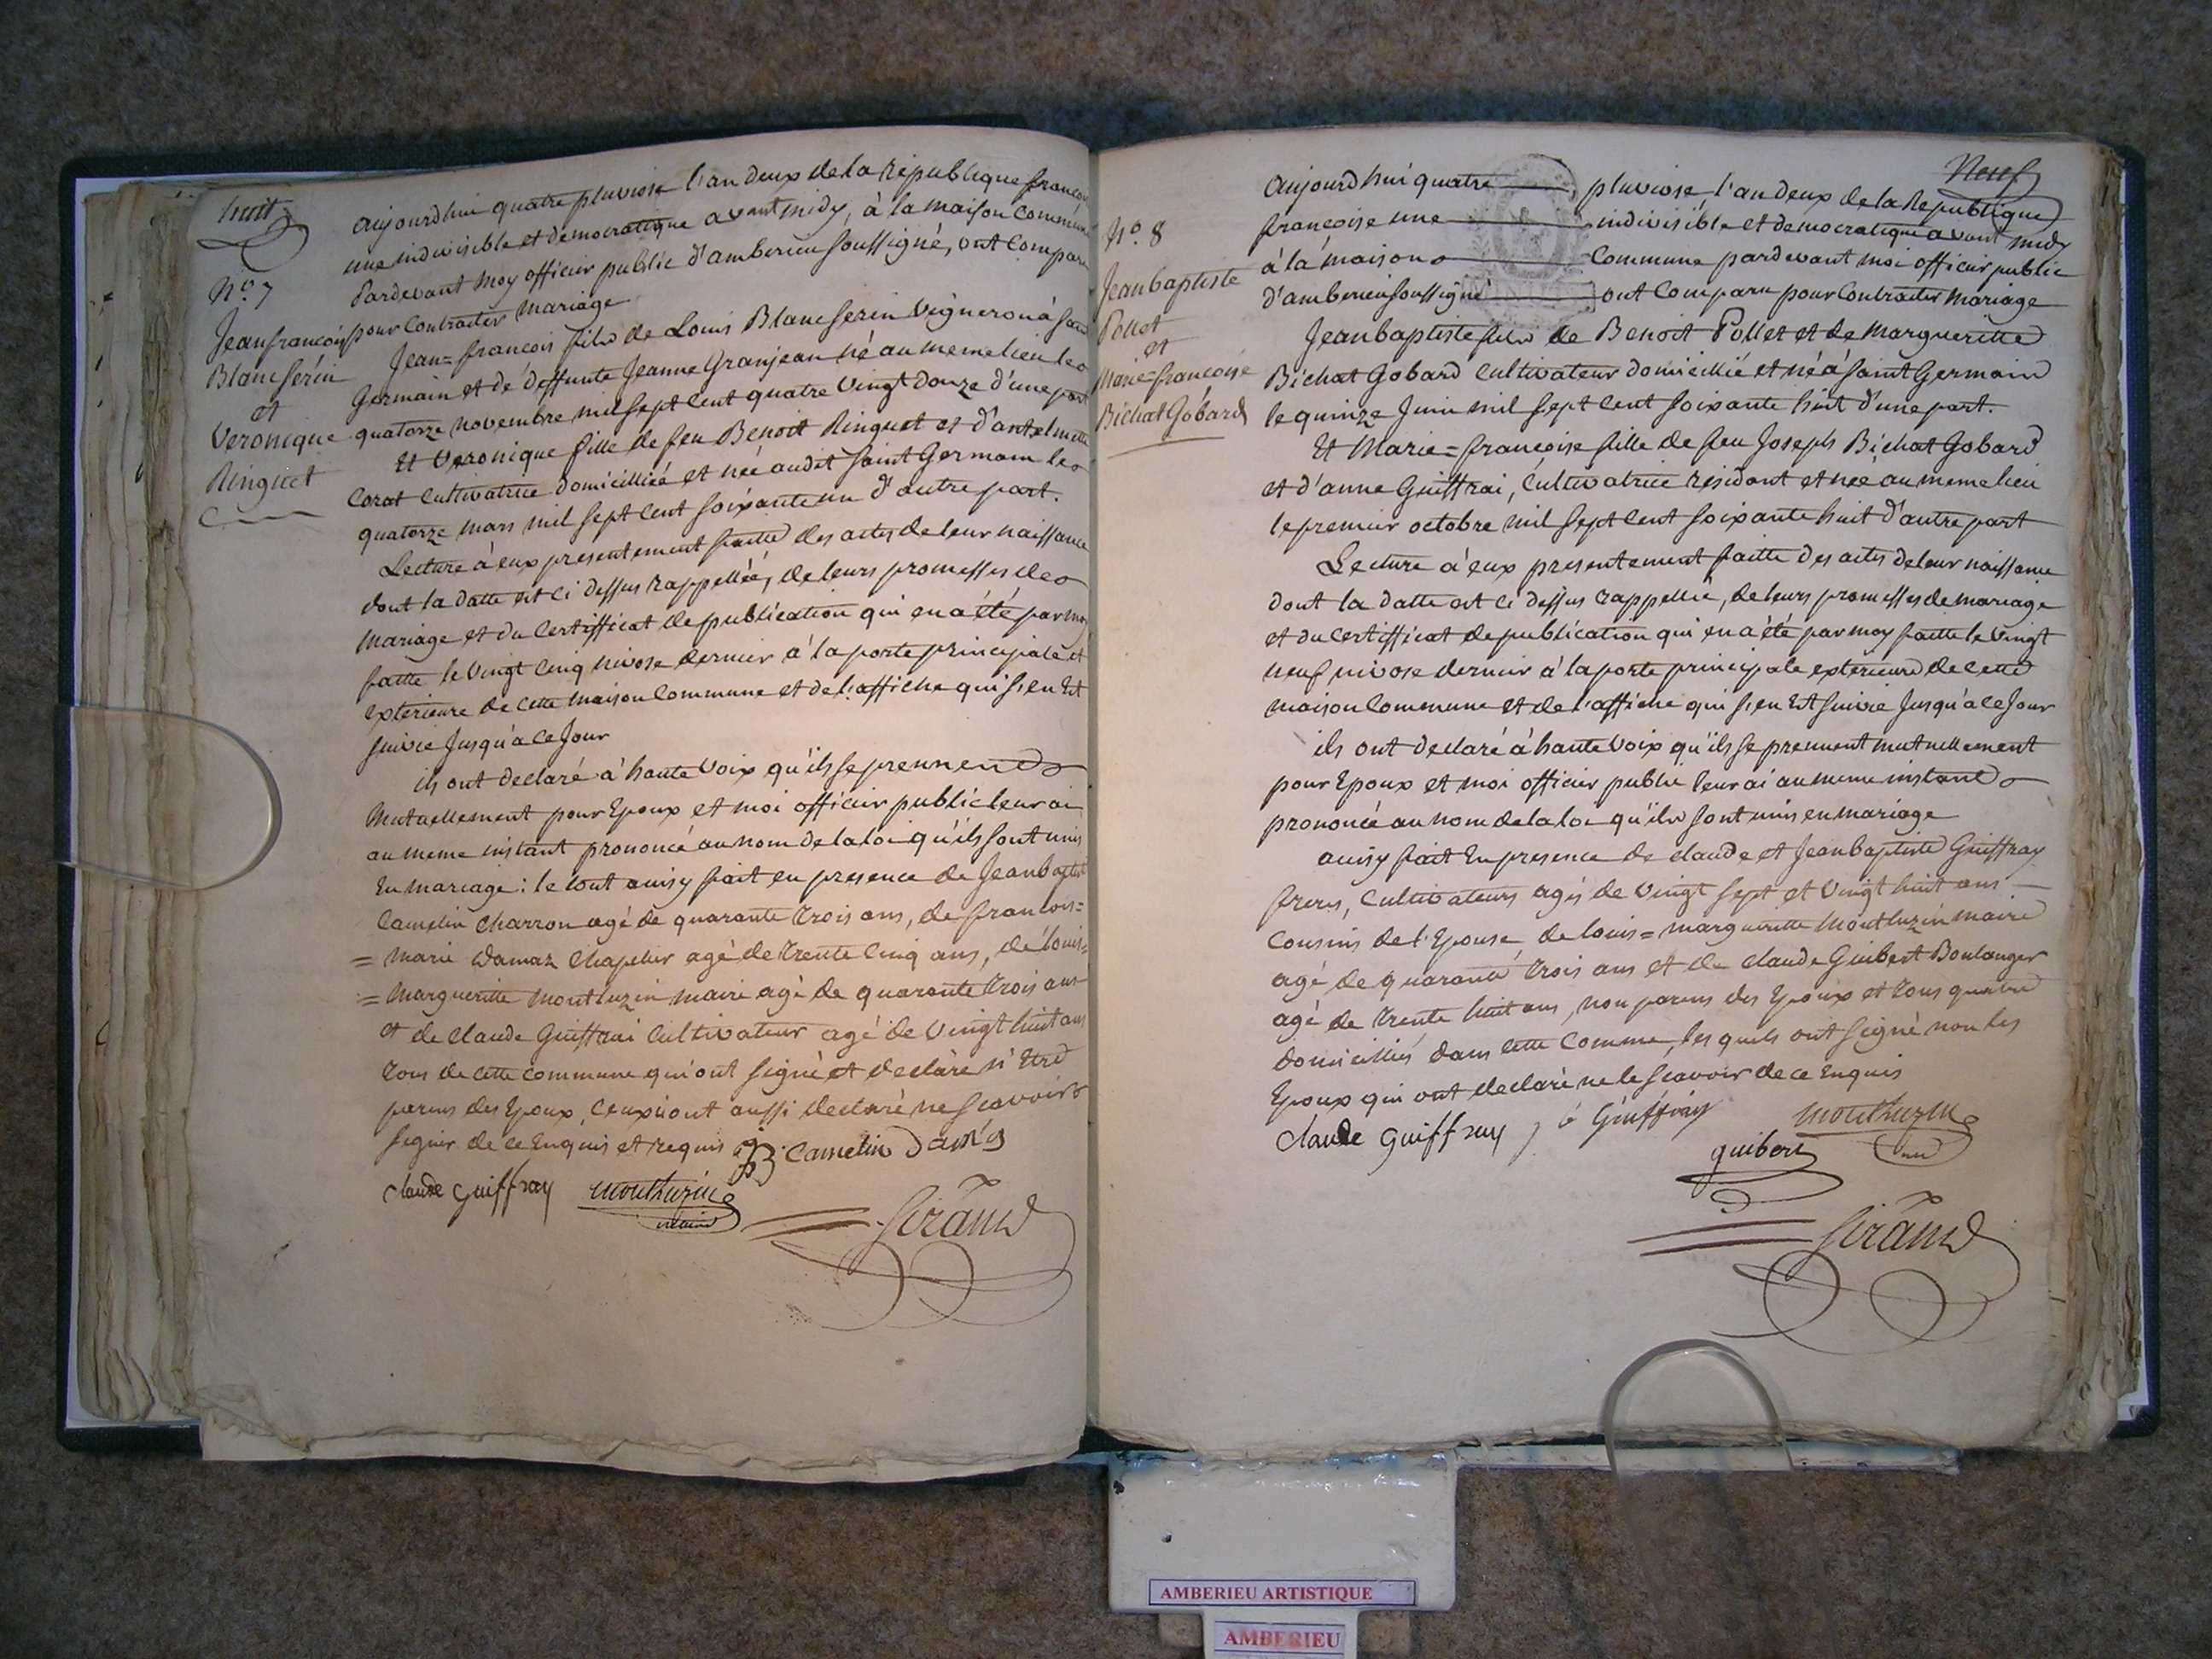 huit
N.º 7
Jean francois
Blanc ferin
et
Veronique
Ringuet
aujourdhui quatre pluviose l'an deux de la République
une indivisible et démocratique avant midy, à la maison commune
Pardevant moy officier public d'amberieu soussigné, ont comparu
pour contracter mariage
Jean=francois fils de Louis Blanc ferin Vigneron à saint
Germain et de deffunte Jeanne Granjean né au meme lieu le
quatorze novembre mil sept cent quatre vingt douze d'une part
Et Veronique fille de feu Benoit Ringuet et d'antelmette
Corat cultivatrice domicilliée et née audit saint Germain le
quatorze mars mil sept cent soixante un d'autre part.
Lecture à eux presentement faitte des actes de leur naissance
dont la datte est ci dessus rappellée, de leurs promesses de
mariage et du certifficat de publication qui en a été par moy
faitte le vingt cinq nivose dernier à la porte principale et
exterieure de cette maison commune et de l'affiche qui s'en est
suivie jusqu'a ce jour
ils ont declaré à haute voix qu'ils se prennend
mutuellement pour Epoux et moi officier public leur ai
au meme instant prononcé au nom de la loi qu'ils sont unis
En mariage : le tout ainsy fait en presence de Jean baptiste
Camelin Charron agé de quarante trois ans, de francois=
=marie Damaz Chapelier agé de trente cinq ans, de louis=
=margueritte montluzin maire agé de quarante trois ans
et de claude Guiffrai cultivateur agé de vingt huit ans
tous de cette commune qui ont signé et declaré n'Etre
parens des Epoux, ceux ci ont aussi declaré ne scavoir
signer de ce Enquis et requis JB Camelin
claude guiffray montluzin
maire
Girãud
Neuf
N.º 8
Jean baptiste
Pollet
et
Marie=francoise
Bichat Gobard
aujourdhui quatre pluviose l'an deux de la Republique
francoise une indivisible et democratique avant midy
à la maison commune pardevant moi officier public
d'amberieu soussigné ont comparu pour contracter mariage
Jean baptiste fils de Benoit Pollet et de Margueritte
Bichat Gobard cultivateur domicillié et né à saint Germain
le quinze Juin mil sept cent soixante huit d'une part.
Et Marie=francoise fille de feu Joseph Bichat Gobard
et d'anne Guiffrai, cultivatrice résidant et née au meme lieu
le premier octobre mil sept cent soixante huit d'autre part
Lecture à eux presentement faitte des actes de leur naissance
dont la datte est ci dessus rappellé, de leurs promesses de mariage
et du certifficat de publication qui en a été par moy faitte le vingt
neuf nivose dernier à la porte principale exterieure de cette
maison commune et de l'affiche qui s'en Est suivie jusqu'à ce jour
ils ont declaré à haute voix qu'ils se prennent mutuellement
pour Epoux et moi officier public leur ai au meme instant
prononcé au nom de la loi qu'ils sont unis en mariage
ainsy fait En presence de claude et Jean baptiste Guiffray
freres, cultivateurs agés de vingt sept et vingt huit ans
cousins de l'Epouse, de louis=margueritte montluzin maire
agé de quarante trois ans et de claude Guibert Boulanger
agé de trente huit ans, non parens des Epoux et tous quatre
domicilliés dans cette comme, les quels ont signé non les
Epoux qui ont declaré ne le scavoir de ce Enquis
claude guiffray j b Guiffray montluzin
guibert
Girãud
AMBERIEU ARTISTIQUE
AMBERIEU